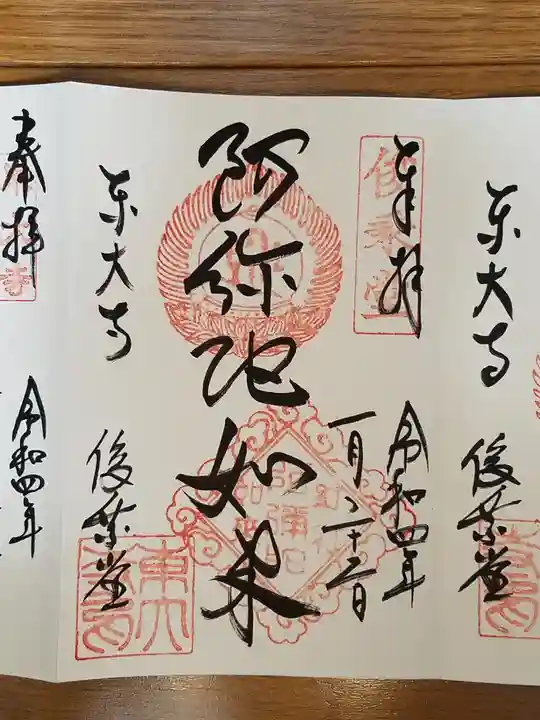 東大寺
俊乗堂
奉拝
俊乗堂
令和四年
一月二十三日
阿弥陀如来
東大寺
俊乗堂
奉拝
令和四年